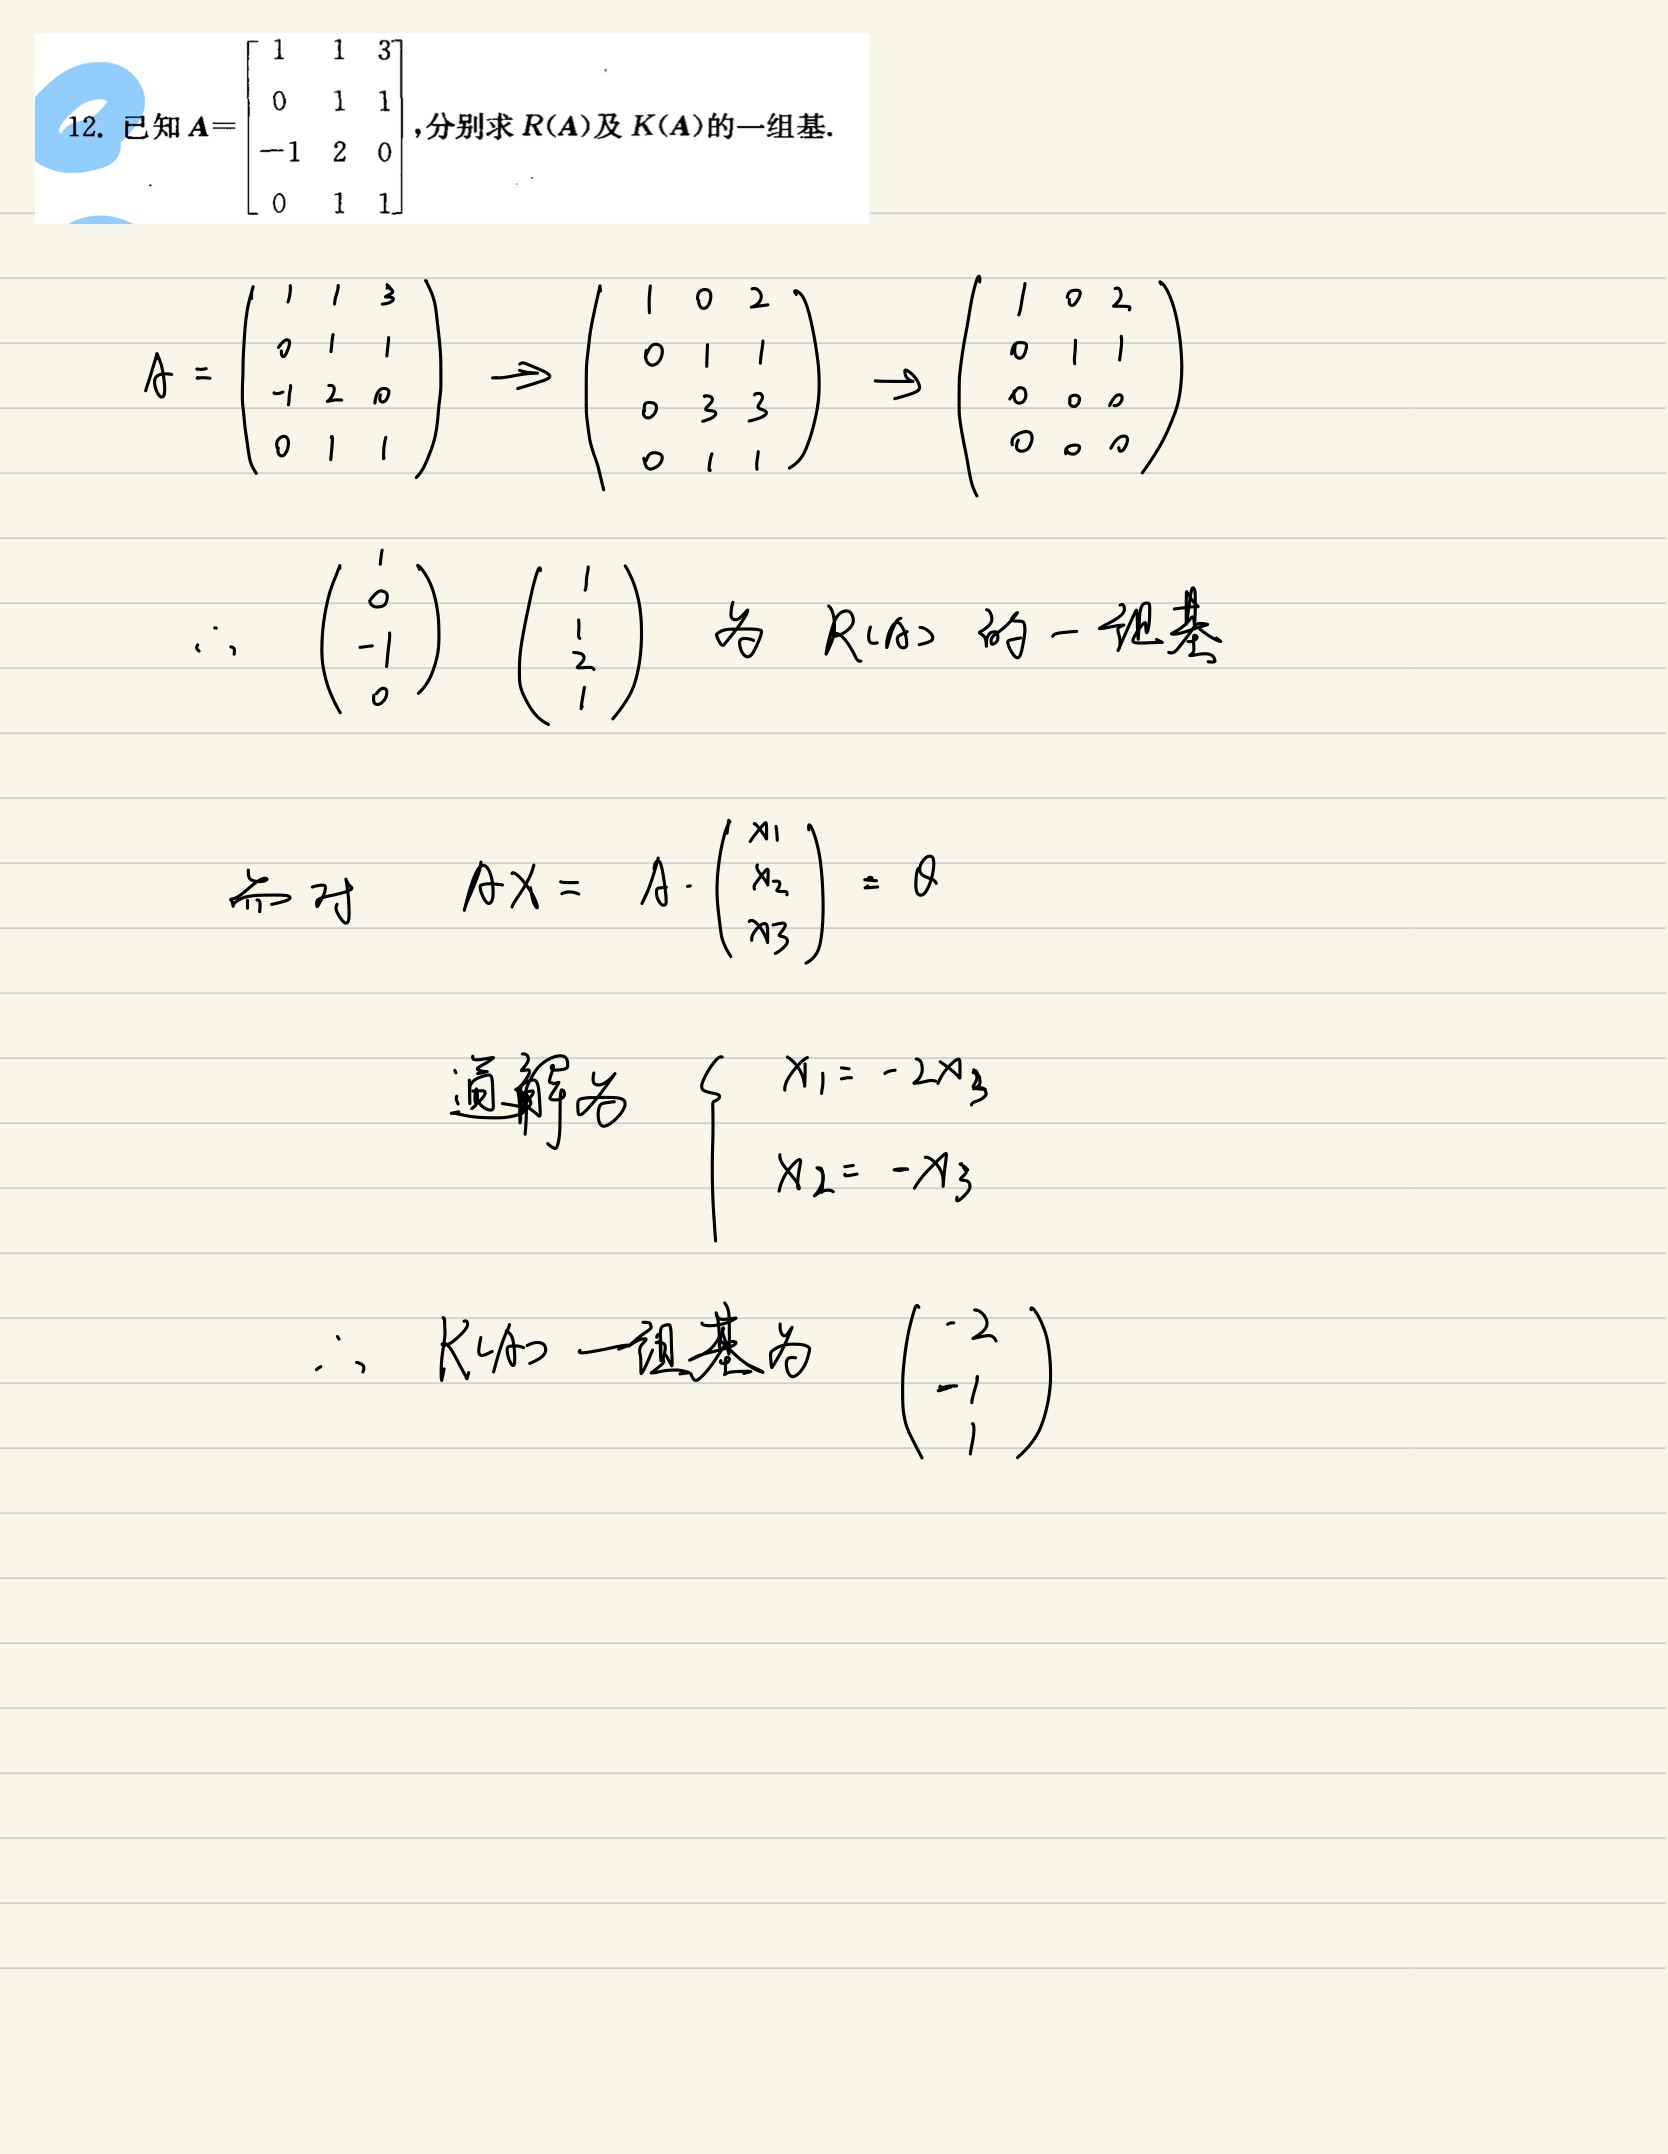 12. 已知 A= [1 1 3; 0 1 1; -1 2 0; 0 1 1] ,分别求 R(A)及 K(A)的一组基.
A = (1 1 3; 0 1 1; -1 2 0; 0 1 1) → (1 0 2; 0 1 1; 0 3 3; 0 1 1) → (1 0 2; 0 1 1; 0 0 0; 0 0 0)
∴ (1; 0; -1; 0) (1; 1; 2; 1) 为 R(A) 的一组基
对 AX = A · (x1; x2; x3) = θ
通解为 { x1 = -2x3
x2 = -x3
∴ K(A) 一组基为 (-2; -1; 1)